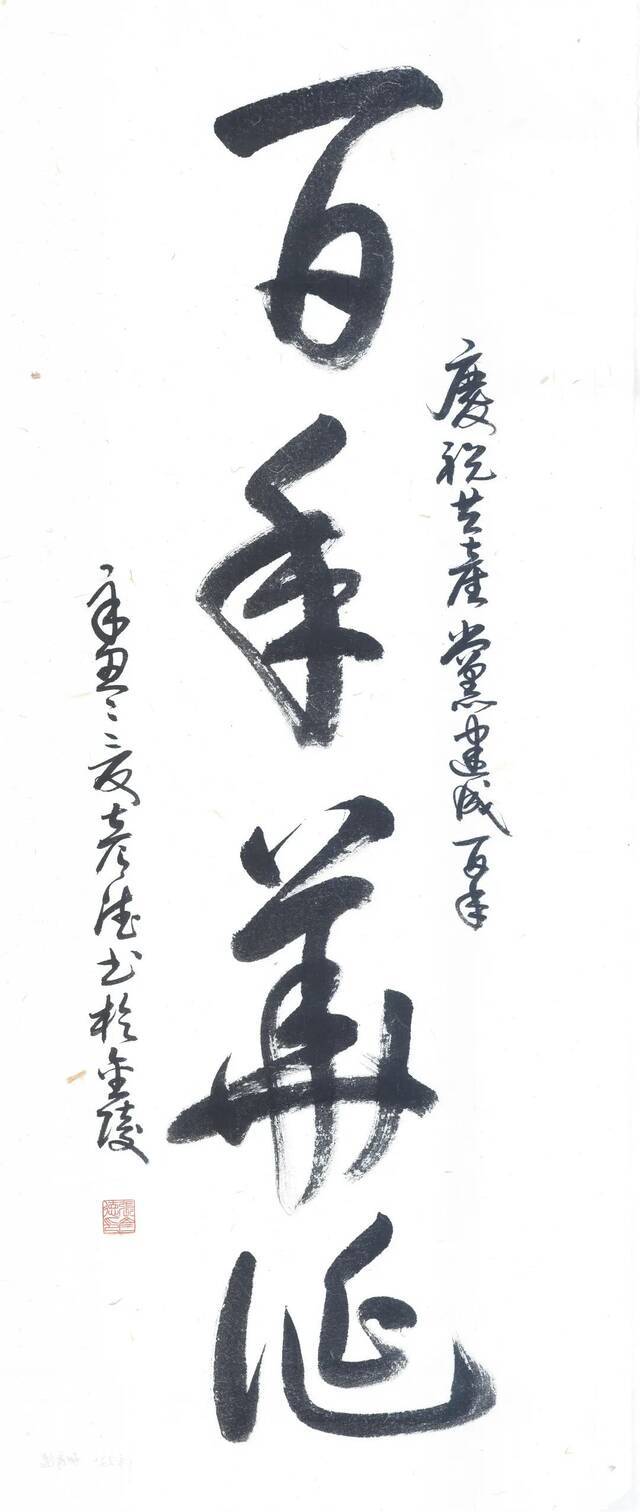 慶祝共產黨建成百年
百年華誕
辛丑之夏彥德書於金陵